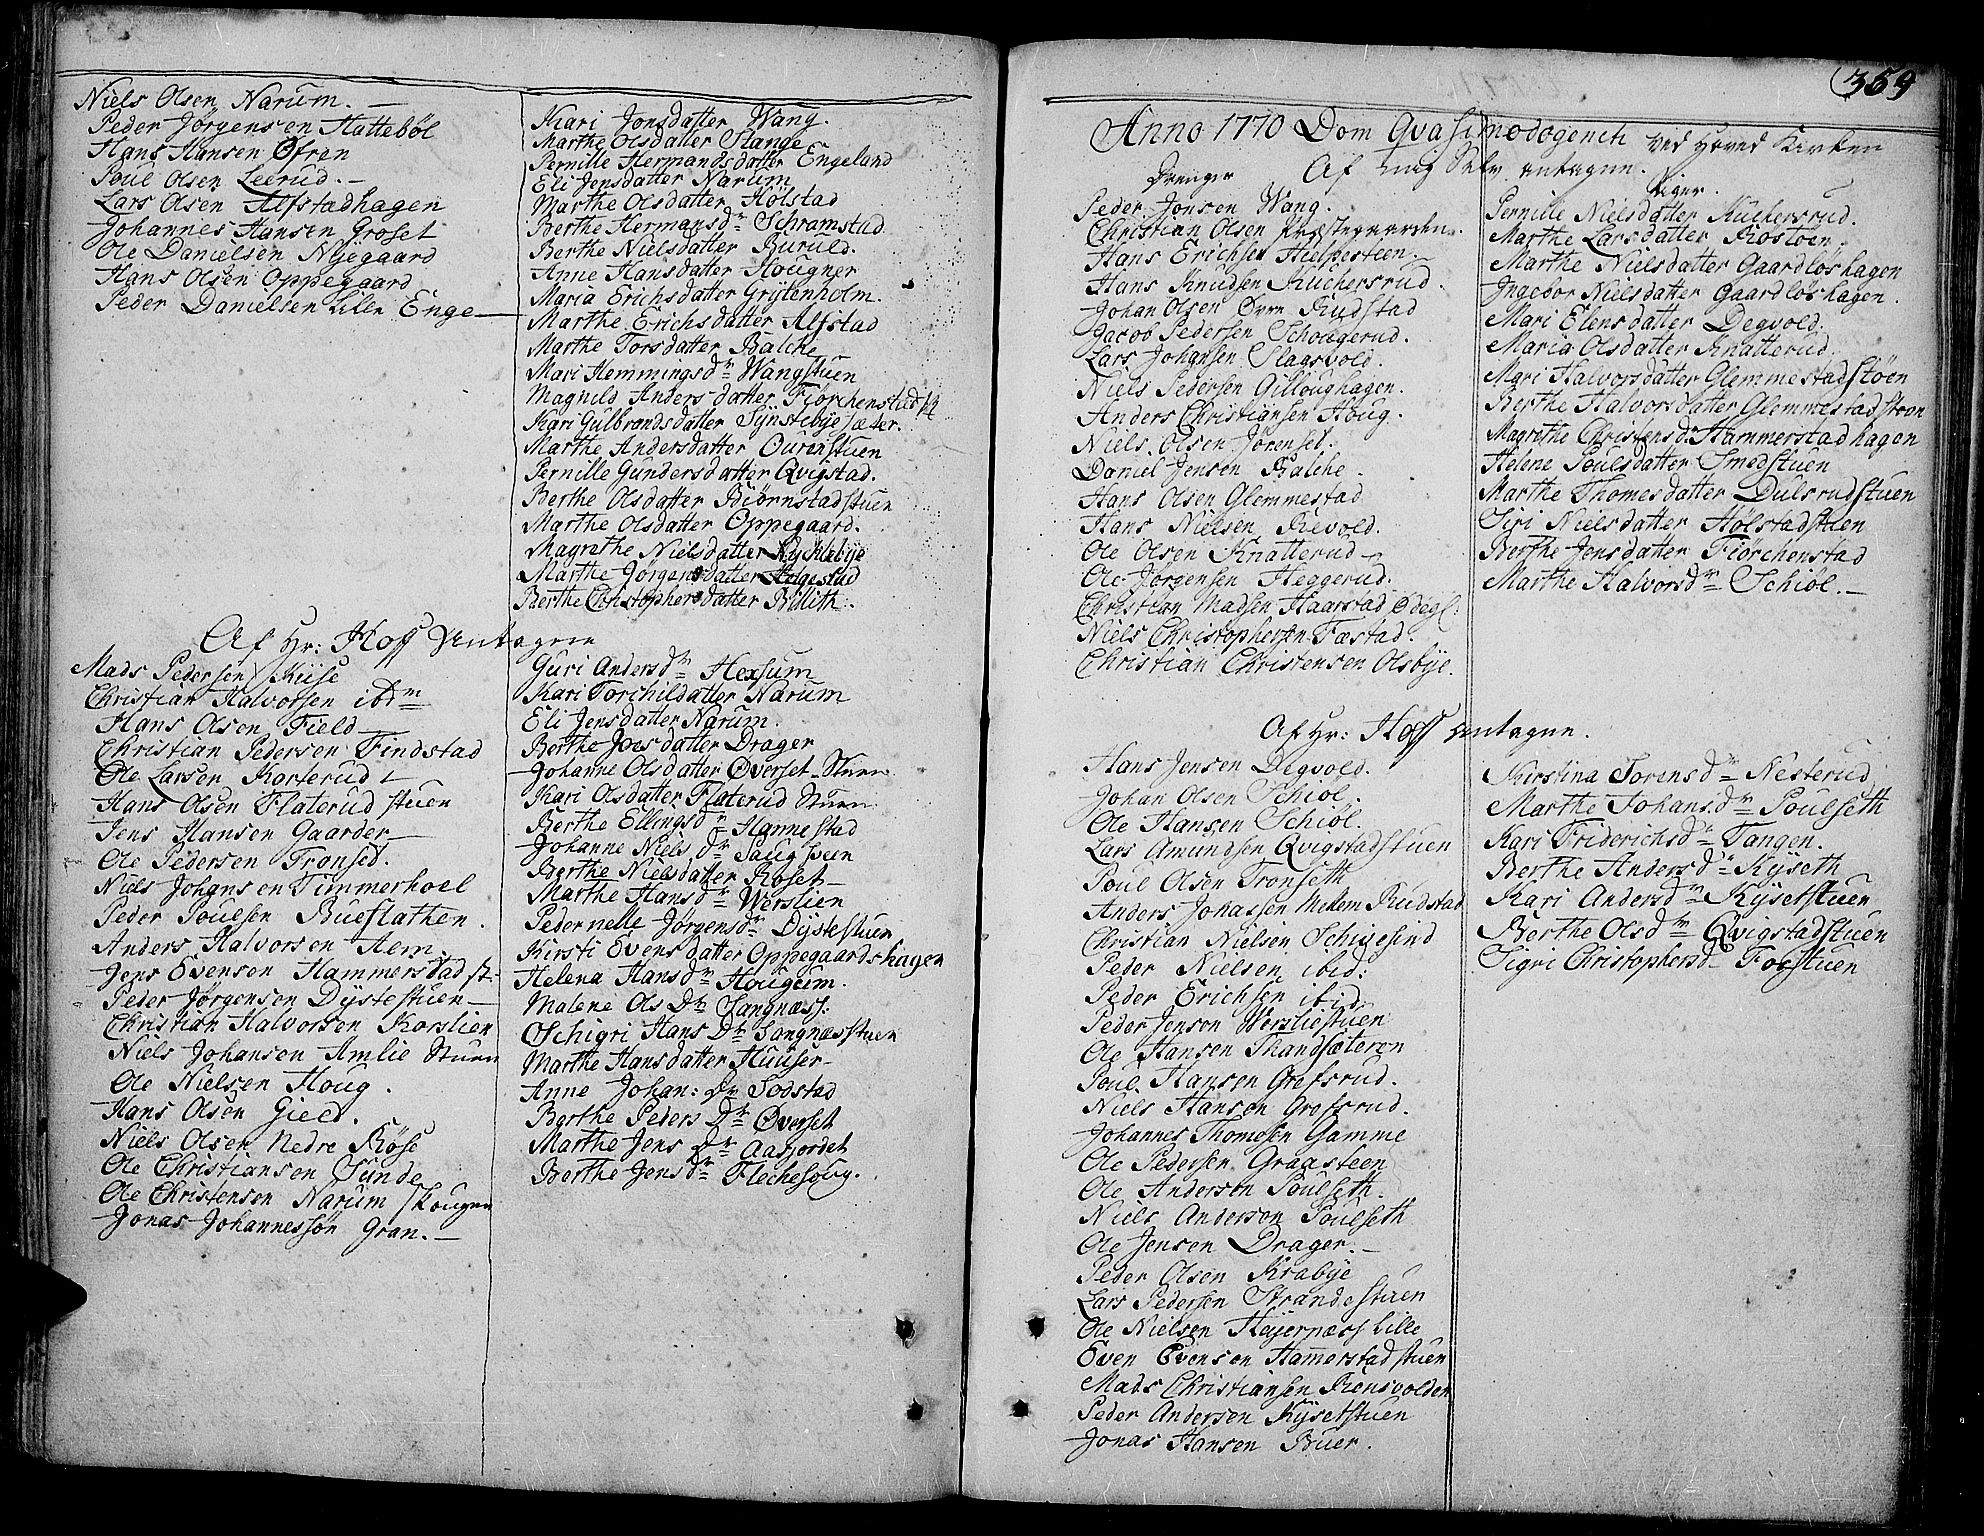 Niels Olsen Narum. —
Peder Jørgensen Hattebøl
Hans Hansen Øfren
Poul Olsen Leerud. —
Lars Olsen Alfstadhagen
Johannes Hansen Groset
Ole Danielsen Nÿegaard
Hans Olsen Oppegaard
Peder Danielsen Lille Enge —
Kari Jonsdatter Wang.
Marthe Olsdatter Stange
Pernille Hermandsdatter Engeland
Eli Jensdatter Narum
Marthe Olsdatter Hølstad
Berthe Hermansdr Schramstad
Berthe Nielsdatter Buruld.
Anne Hansdatter Hougner
Maria Erichsdatter Grÿtenholm.
Marthe Erichsdatter Alfstad
Marthe Torsdatter Balche
Mari Hemmingsdr Wangstuen
Magnild Andersdatter Fiorchenstad
Kari Gulbrandsdatter Sÿnstebÿesæter.
Marthe Andersdatter Ourenstuen
Pernille Gundersdatter Qvigstad.
Berthe Olsdatter Biørnstadstuen
Marthe Olsdatter Oppegaard.
Magrethe Nielsdatter Nÿchlebÿe
Marthe Jørgensdatter Helgestad
Berthe Christophersdatter Billith.
Af Hr: Hoff antagne
Mads Pedersen Kiise
Christian Halvorsen ibdm
Hans Olsen Field —
Christian Pedersen Findstad
Ole Larsen Karterud —
Hans Olsen Flaterudstuen
Jens Hansen Gaarder —
Ole Pedersen Tronsed.
Niels Johansen Timmerhoel
Peder Poulsen Bueflathen.
Anders Halvorsen Aem.
Jens Evensen Hammerstadst:
Peder Jørgensen Dÿstestuen —
Christian Halvorsen Korslien
Niels Johansen Amlie Stuen
Ole Nielsen Houg.
Hans Olsen Gield.
Niels Olsen Nedre Røse
Ole Christiansen Sunde
Ole Christensen Narumskougen
Jonas Johannessøn Gran. —
Guri Andersdr Hexum
Kari Torchildatter Narum
Eli Jensdatter Narum.
Berthe Jonsdatter Drager
Johanne Olsdatter Øverset Stuen
Kari Olsdatter Flaterud Stuen
Berthe Ellingsdr Hannestad
Johanne Niels dr Saugsveen
Berthe Nielsdatter Roset —
Marthe Hansdr Werslien
Pedernelle Jørgensdr Dÿstestuen
Kirsti Evensdatter Oppegaardshagen
Helena Hansdr Hougeim.
Malene Ols Dr Sangnæss:
Schigri Hans Dr Sangnæsstuen
Marthe Hansdatter Huuser —
Anne Johan: Dr Sodstad
Berthe Peders Dr Øverset
Marthe Jens Dr Aasjordet
Berthe Jensdr Flechesøvg.
359
Anno 1770 Dom Qvasimodogenit ved Hoved Kirken
Af mig Selv antagne.
Drenger
Peder Jonsen Wang.
Christian Olsen Præstegaarden.
Hans Erichsen Hielpesteen.
Hans Knudsen Kuchersrud.
Johan Olsen Øvre Rudstad
Jacob Pedersen Schougerud.
Lars Johansen Slagsvold.
Niels Pedersen Gilloughagen.
Anders Christiansen Houg.
Niels Olsen Jørensed.
Daniel Jensen Balche.
Hans Olsen Glemmestad
Hans Nielsen Rievold.
Ole Olsen Knatterud —
Ole Jørgensen Heggerud.
Christian Madsen Haarstad Ødegl:
Niels Christophersen Fæstad.
Christian Christensen Olsbÿe.
Piger.
Pernille Nielsdatter Kuchersrud.
Marthe Larsdatter Rostøen.
Marthe Nielsdatter Gaardløshagen
Ingebor Nielsdatter Gaardløshagen.
Mari Elensdatter Degvold.
Maria Olsdatter Knatterud
Mari Halvorsdatter Glemmestadstøen
Berthe Halvorsdatter Glemmestadstøen
Magrethe Christensd: Hammerstadhagen
Helene Poulsdatter Smedstuen
Marthe Thomesdatter Dulsrudstuen
Siri Nielsdatter Hølstadstuen
Berthe Jensdatter Fiørchenstad
Marthe Halvorsdr Schiøl. —
Af Hr: Hoff antagne.
Hans Jensen Degvold.
Johan Olsen Schiøl.
Ole Hansen Schiøl.
Lars Amundsen Qvigstadstuen
Poul Olsen Tronseth
Anders Johassen Mellem Rudstad
Christian Nielsen Schigesind
Peder Nielsen ibid:
Peder Erichsen ibid
Peder Jensen Wersliestuen
Ole Hansen Thandsæteren
Poul Hansen Grefsrud.
Niels Hansen Grefsrud.
Johannes Thomesen Gamme
Ole Pedersen Graasteen
Ole Andersen Poulseth.
Niels Anderson Poulseth
Ole Jensen Drager. —
Peder Olsen Krabÿe
Lars Pedersen Strandestuen
Ole Nielsen Heÿernæss Lille
Even Evensen Hamerstadstuen
Mads Christiansen Rensvolden
Peder Andersen Kÿsetstuen
Jonas Hansen Buer.
Kirstina Sorensdr Nesterud
Marthe Johansdr Poulseth
Kari Friderichsdr Tangen.
Berthe Andersdr Kÿseth
Kari Andersdr Kÿsetstuen
Berthe Olsdr Qvigstadstuen
Sigri Christophersd Fossstuen